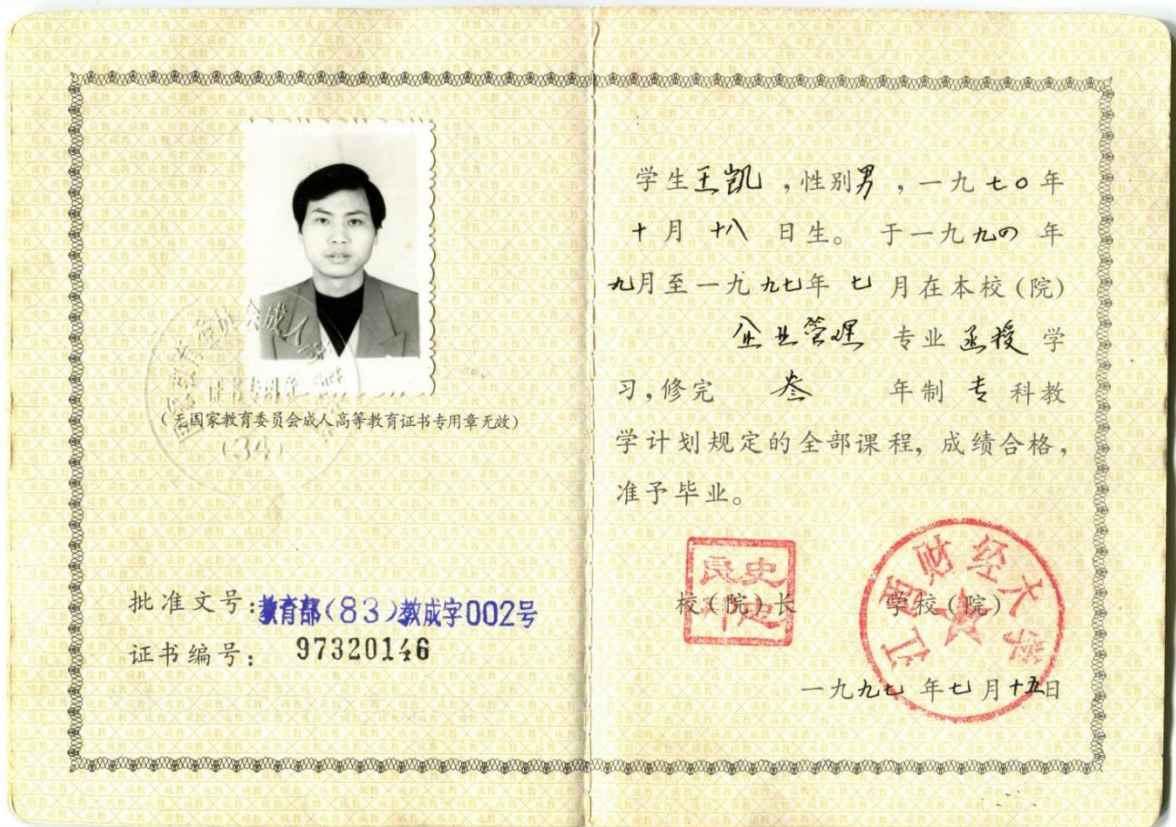 (无国家教育委员会成人高等教育证书专用章无效)
(34)
批准文号:教育部(83)教成字002号
证书编号: 97320146
学生王凯,性别男,一九七〇年
十月十八日生。于一九九四年
九月至一九九七年七月在本校(院)
企业管理专业函授学
习,修完叁年制专科教
学计划规定的全部课程,成绩合格,
准予毕业。
校(院)长 学校(院)
江西财经大学
一九九七年七月十五日